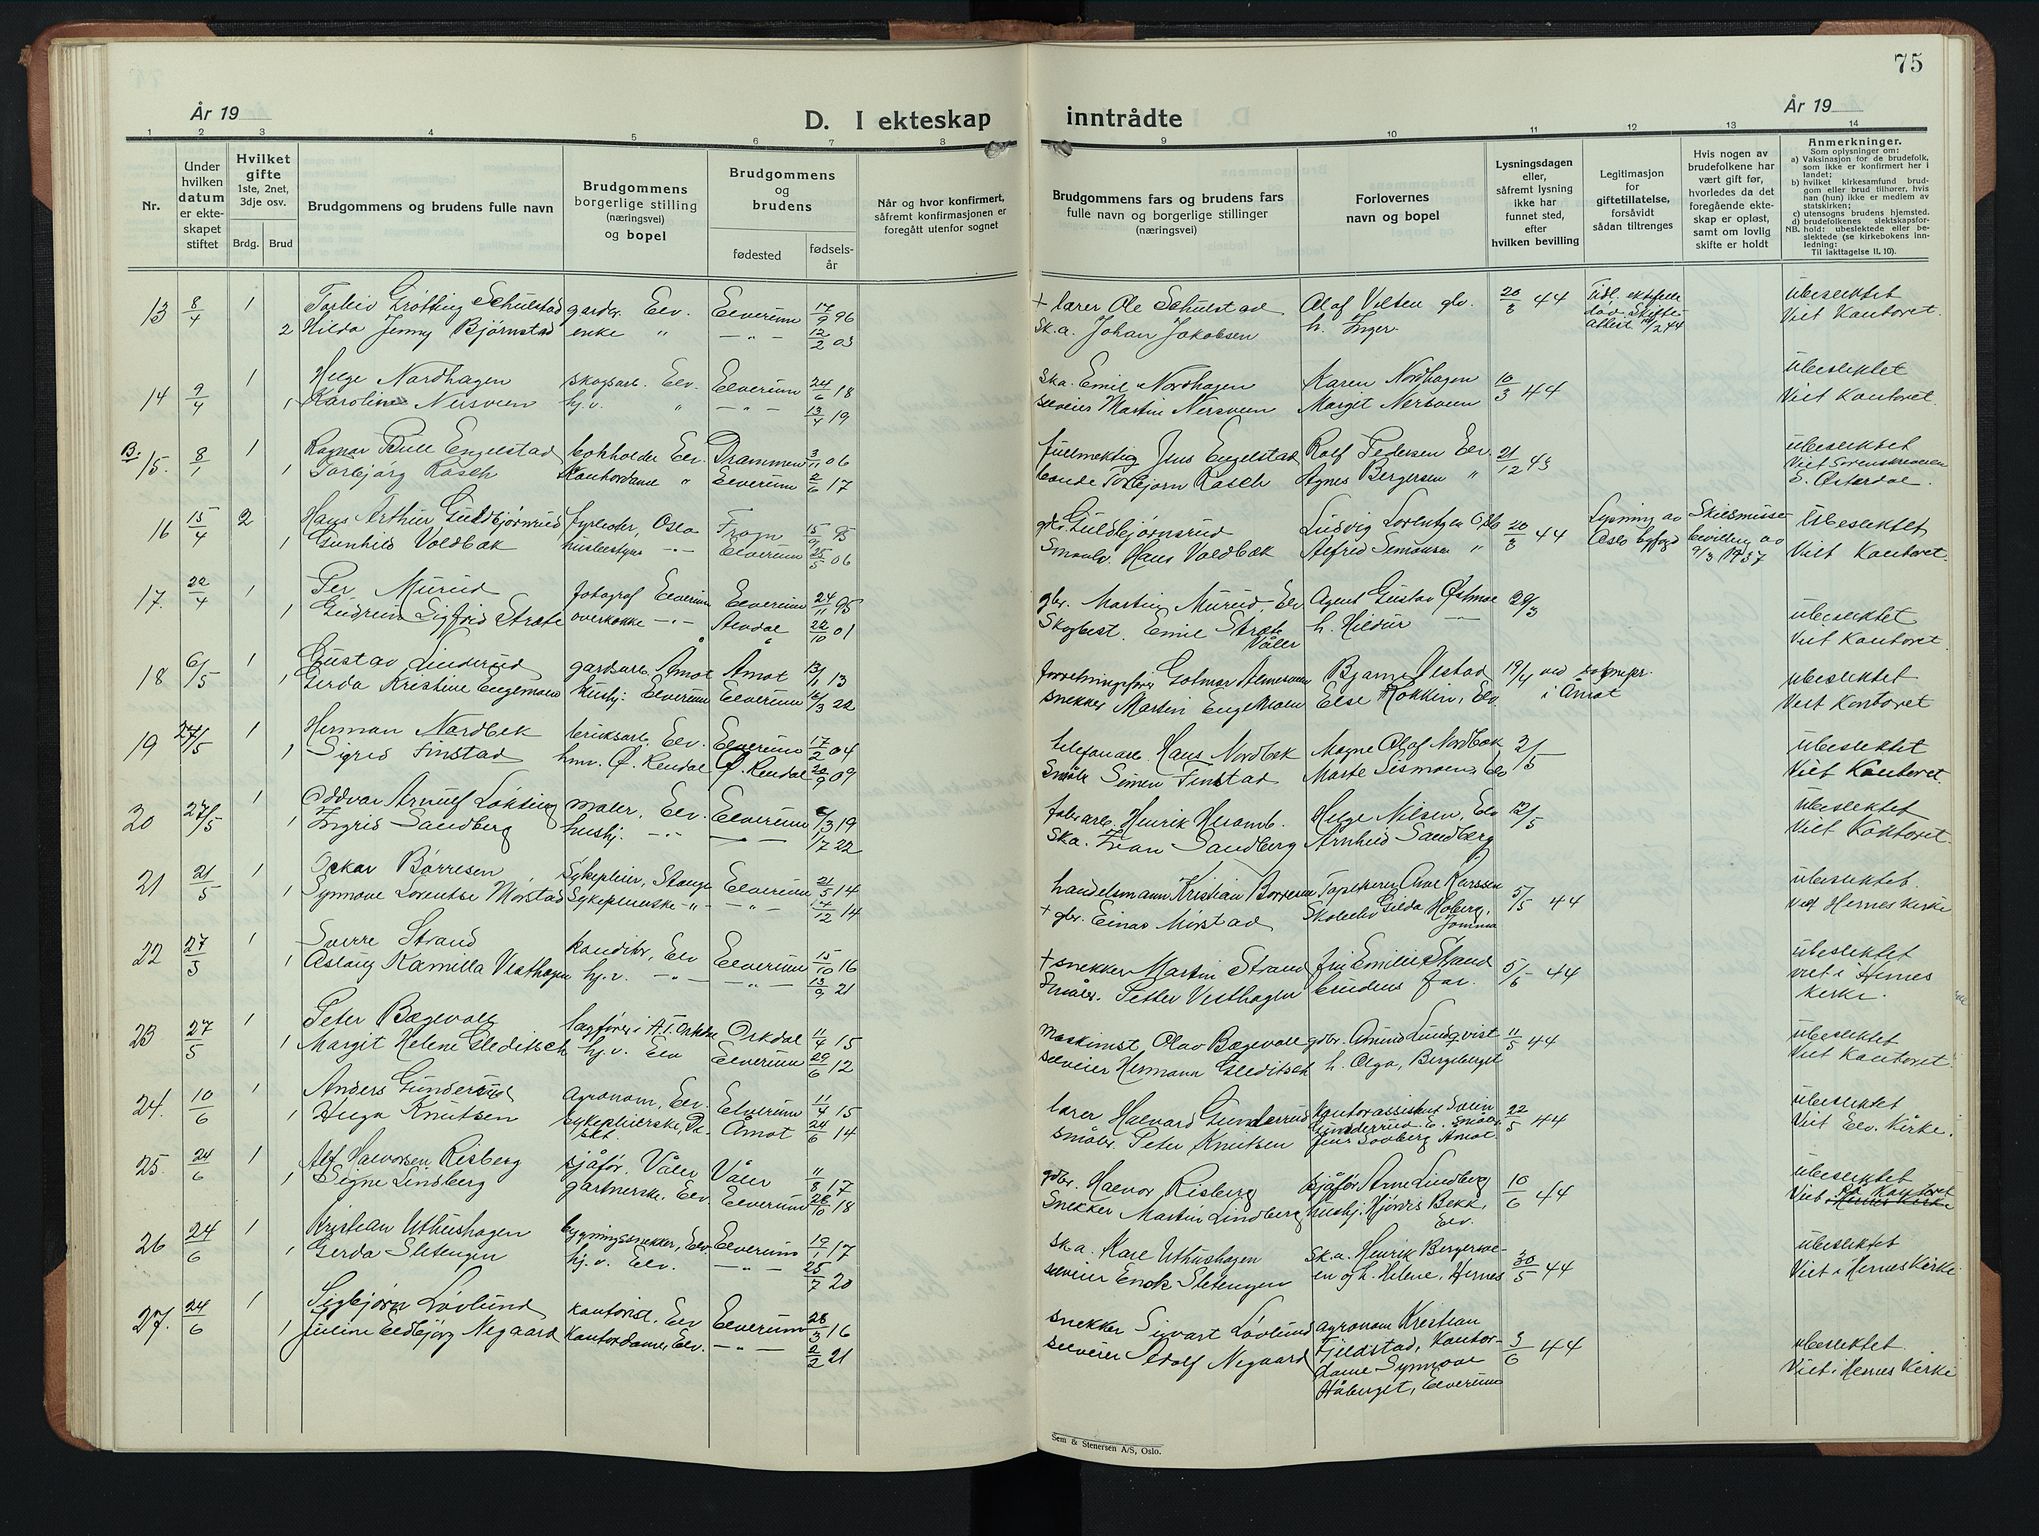 75
År 19
D. I ekteskap
inntrådte
År 19
1 2 3 4 5 6 7 8 9 10 11 12 13 14
Nr.
Under
hvilken
datum
er ekte-
skapet
stiftet
Hvilket
gifte
1ste, 2net,
3dje osv.
Brdg. Brud
Brudgommens og brudens fulle navn
Brudgommens
borgerlige stilling
(næringsvei)
og bopel
Brudgommens
og
brudens
fødested
fødsels-
år
Når og hvor konfirmert,
såfremt konfirmasjonen er
foregått utenfor sognet
Brudgommens fars og brudens fars
fulle navn og borgerlige stillinger
(næringsvei)
Forlovernes
navn og bopel
Lysningsdagen
eller,
såfremt lysning
ikke har
funnet sted,
efter
hvilken bevilling
Legitimasjon
for
giftetillatelse,
forsåvidt
sådan tiltrenges
Hvis nogen av
brudefolkene har
vært gift før,
hvorledes da det
foregående ekte-
skap er opløst,
samt om lovlig
skifte er holdt
Anmerkninger.
Som oplysninger om:
a) Vaksinasjon for de brudefolk,
som ikke er konfirmert her i
landet;
b) hvilket kirkesamfund brud-
gom eller brud tilhører, hvis
han (hun) ikke er medlem av
statskirken;
c) utensogns brudens hjemsted.
d) brudefolkenes slektskapsfor-
NB. hold: ubeslektede eller be-
slektede (se kirkebokens inn-
ledning:
Til iakttagelse II. 10).
13 8/4 1 gardbr. Elv. Elverum 17/9 96 + lærer Ole Schulstad h. Inger 20/3 44 ubeslektet
2 Hilda Jenny Bjørnstad enke " — " — 12/2 03 Ska. Johan Jakobsen Viet Kontoret.
14 9/4 1 Helge Nordhagen skogsarb. Elv. Elverum 24/6 18 Ska. Emil Nordhagen Karen Nordhagen 10/3 44 ubeslektet
1 Karoline Nersveen hj.v. " — " — 13/4 19 selveier Martin Nersveen Margit Nersveen Viet Kontoret.
B. 15. 8/1 1 Ragnar Bull Engelstad bokholder Elv. Drammen 3/11 06 fullmektig Jens Engelstad Rolf Pedersen Elv. 21/12 43 ubeslektet
1 Torbjørg Rasch Kontordame " Elverum 2/6 17 bonde Torbjørn Rasch Agnes Bergersen " Viet Sorenskriveren
S. Østerdal.
16 15/4 2 Hans Arthur Guldbjørnrud Oslo Frogn 15/9 95 Guldbjørnsrud Ludvig Lorentzen Oslo 20/3 44 Lysning av Skilsmisse ubeslektet
1 Gunhild Voldbæk " Elverum 25/5 06 Hans Voldbæk Alfred Simonsen " Oslo byfogd bevilling av 9/3 1937 Viet Kontoret.
17. 22/4 1 Per Murud fotograf Elverum Elverum 24/11 95 gbr. Martin Murud, Elv Agent Gustav Østmoe 28/3 ubeslektet
1 Gudrun Sigfrid Stræte overkokke — " — Alvdal 22/10 01 Skogbest. Emil Stræte Våler h. Hildur Viet Kontoret
18 6/5 1 Gustav Linderud gardsarb. Åmot Åmot 13/11 13 19/4 ved soknepr. ubeslektet
1 Gerda Kristine Engemoen hushj. Elverum Elverum 16/3 22 snekker Marten Engemoen i Åmot Viet Kontoret
19 27/5 1 Herman Nordbek Elv. Elverum 17/2 04 telefonarb. Hans Nordbæk Magne Olaf Nordbæk 2/5 ubeslektet
1 Sigrid Finstad hmv. Ø. Rendal Ø. Rendal 20/9 09 Småbr. Simen Finstad Viet Kontoret.
20 27/5 1 Oddvar Arnulf maler, Elv. Elverum 6/3 19 Henrik Helge Nilsen, Elv 12/5 ubeslektet
1 Ingrid Sandberg hushj. — " — 1/7 22 Ska. Sandberg Arnhild Sandberg Viet Kontoret.
21 21/5 1 Oskar Børresen sykepleier, Stange Elverum 21/5 14 handelsmann Kristian Børresen 5/5 44 ubeslektet.
1 Synnøve Lorentse Mørstad Sykepleierske — " — — " — 14/12 14 + gbr. Einar Mørstad Viet Hernes kirke
22 27/5 1 Sverre Strand konditor, Elv Elverum 15/10 16 + snekker Martin Strand fru Emilie Strand 44 ubeslektet
1 Aslaug Kamilla Vesthagen hj.v. — " — — " — 13/9 21 Småbr. Petter Vesthagen brudens far. viet i Hernes
kirke.
23 27/5 1 Peter Bægevoll Orkdal 11/4 15 Maskinist Olav Bægevoll gdbr. Amund Lundqvist 11/5 44 ubeslektet
1 Margit Helene Gleditsch hj.v. Elv Elverum 29/6 12 selveier Hermann Gleditsch h. Olga, Bergeberget Viet Kontoret.
24. 10/6 1 Anders Gunderud Agronom, Elv. Elverum 11/4 15 lærer Halvard Gunderud Kontorassistent Svein 22/5 44 ubeslektet
1 Knutsen Sykepleierske, Åmot 24/6 14 småbr. Peter Knutsen Åmot Viet Elv. Kirke.
25. 24/6 1 Alf Halvorsen Risberg sjåfør, Våler Våler 11/8 17 gdbr. Halvor Risberg sjåfør Arne Lindberg 10/6 44 ubeslektet
1 Signe Lindberg gartnerske, Elv. Elverum 28/10 18 Snekker Martin Lindberg hushj. Hjørdis Bekk, Elv. Viet på Kontoret Hernes Kirke
26 24/6 1 Kristian Uthushagen bygningssnekker, Elv Elverum 19/1 17 Ska. Kare Uthushagen Ska. Henrik Bergersve- 30/5 44 ubeslektet
1 Gerda Sletengen hj.v. Elv. — " — 25/7 20 selveier Enok Sletengen en og h. Helene, Hernes Viet i Hernes Kirke
27. 24/6 1 Sigbjørn Løvlund kontorist, Elv Elverum 28/3 16 snekker Sivart Løvlund Agronom Kristian 3/6 44 ubeslektet.
1 Juline Eldbjørg Negaard Kontordame, Elv. — " — 2/2 21 selveier Adolf Negaard Fjeldstad, Kontor- Viet i Hernes Kirke
dame Synnøve
Håberget, Elverum
Sem & Stenersen A/S, Oslo.